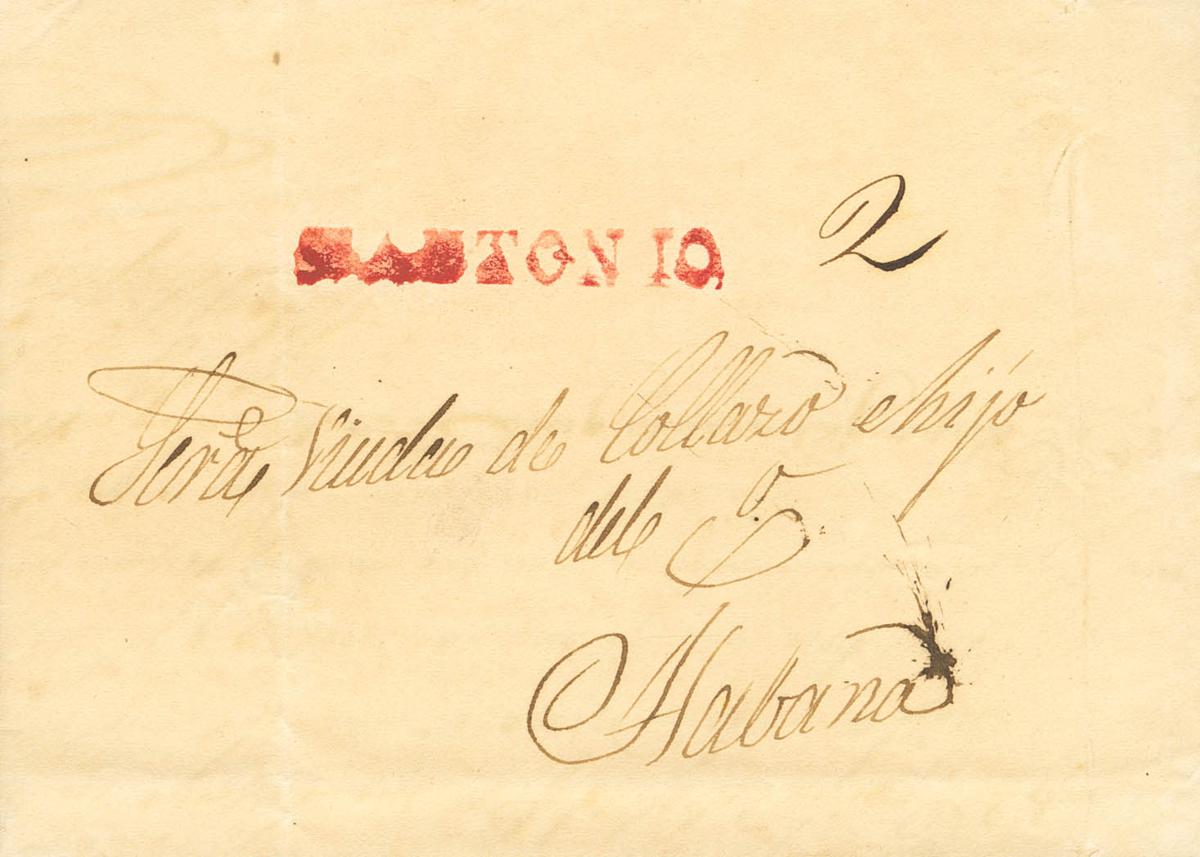 S. ANTONIO,
2
Señra Viuda de Collazo e hijo
del Cº.
Habana